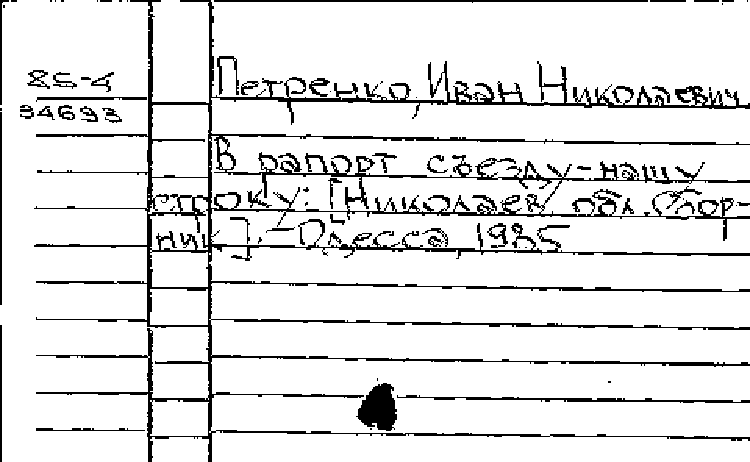 85-4
94693
Петренко, Иван Николаевич
В рапорт съезду-нашу
строку: [Николаев, обл. Сбор-
ник].-Одесса, 1985